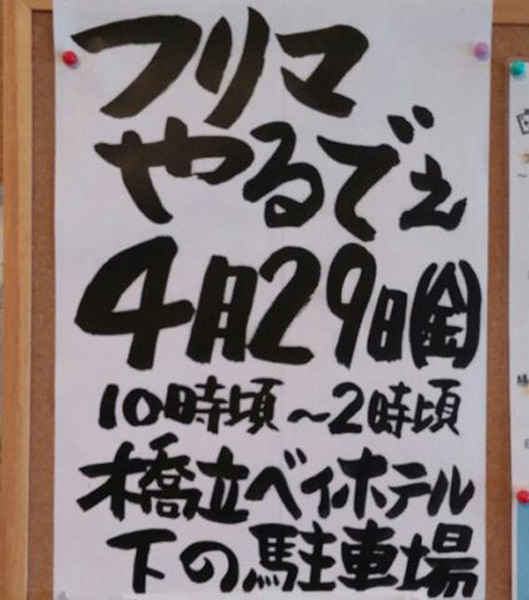 フリマ
やるでぇ
4月29日(金)
10時頃～2時頃
橋立ベイホテル
下の駐車場